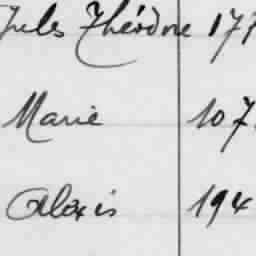 Jules Théodore 177
Marie 107
Alexis 194